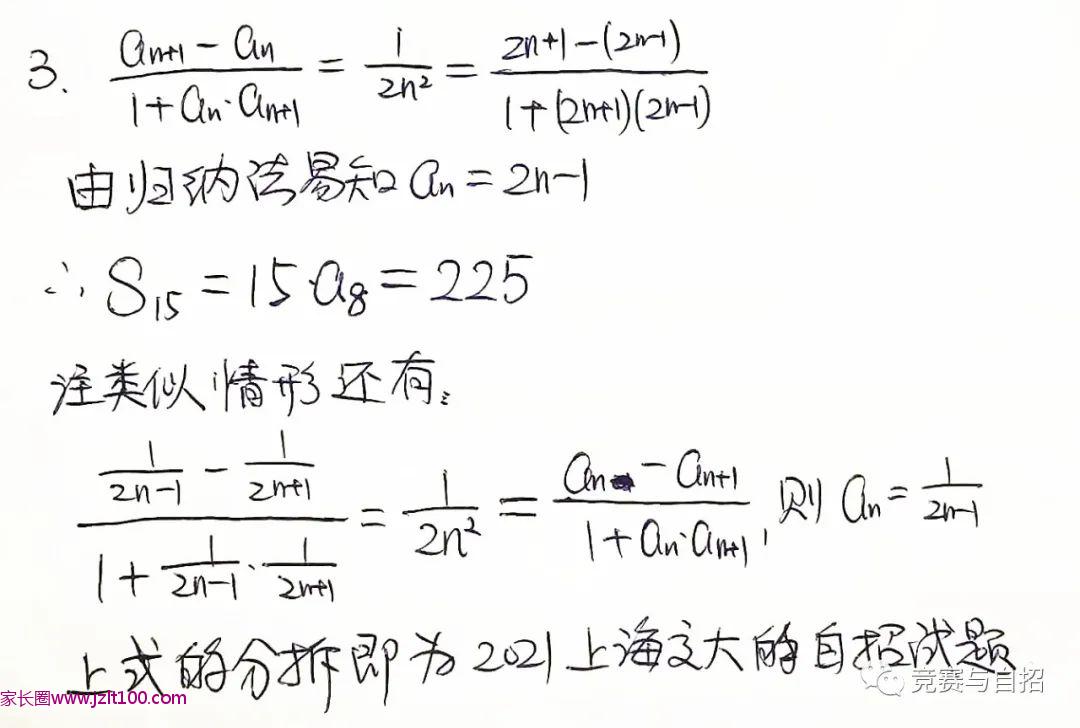 3. \frac{a_{n+1} - a_n}{1 + a_n \cdot a_{n+1}} = \frac{1}{2n^2} = \frac{2n+1-(2n-1)}{1+(2n+1)(2n-1)}
由归纳法易知 a_n = 2n-1
∴ S_{15} = 15 a_8 = 225
注类似情形还有:
\frac{\frac{1}{2n-1} - \frac{1}{2n+1}}{1 + \frac{1}{2n-1} \cdot \frac{1}{2n+1}} = \frac{1}{2n^2} = \frac{a_n - a_{n+1}}{1 + a_n \cdot a_{n+1}}, 则 a_n = \frac{1}{2n-1}
上式的分拆即为2021上海交大的自招试题
竞赛与自招
家长圈www.jzlt100.com